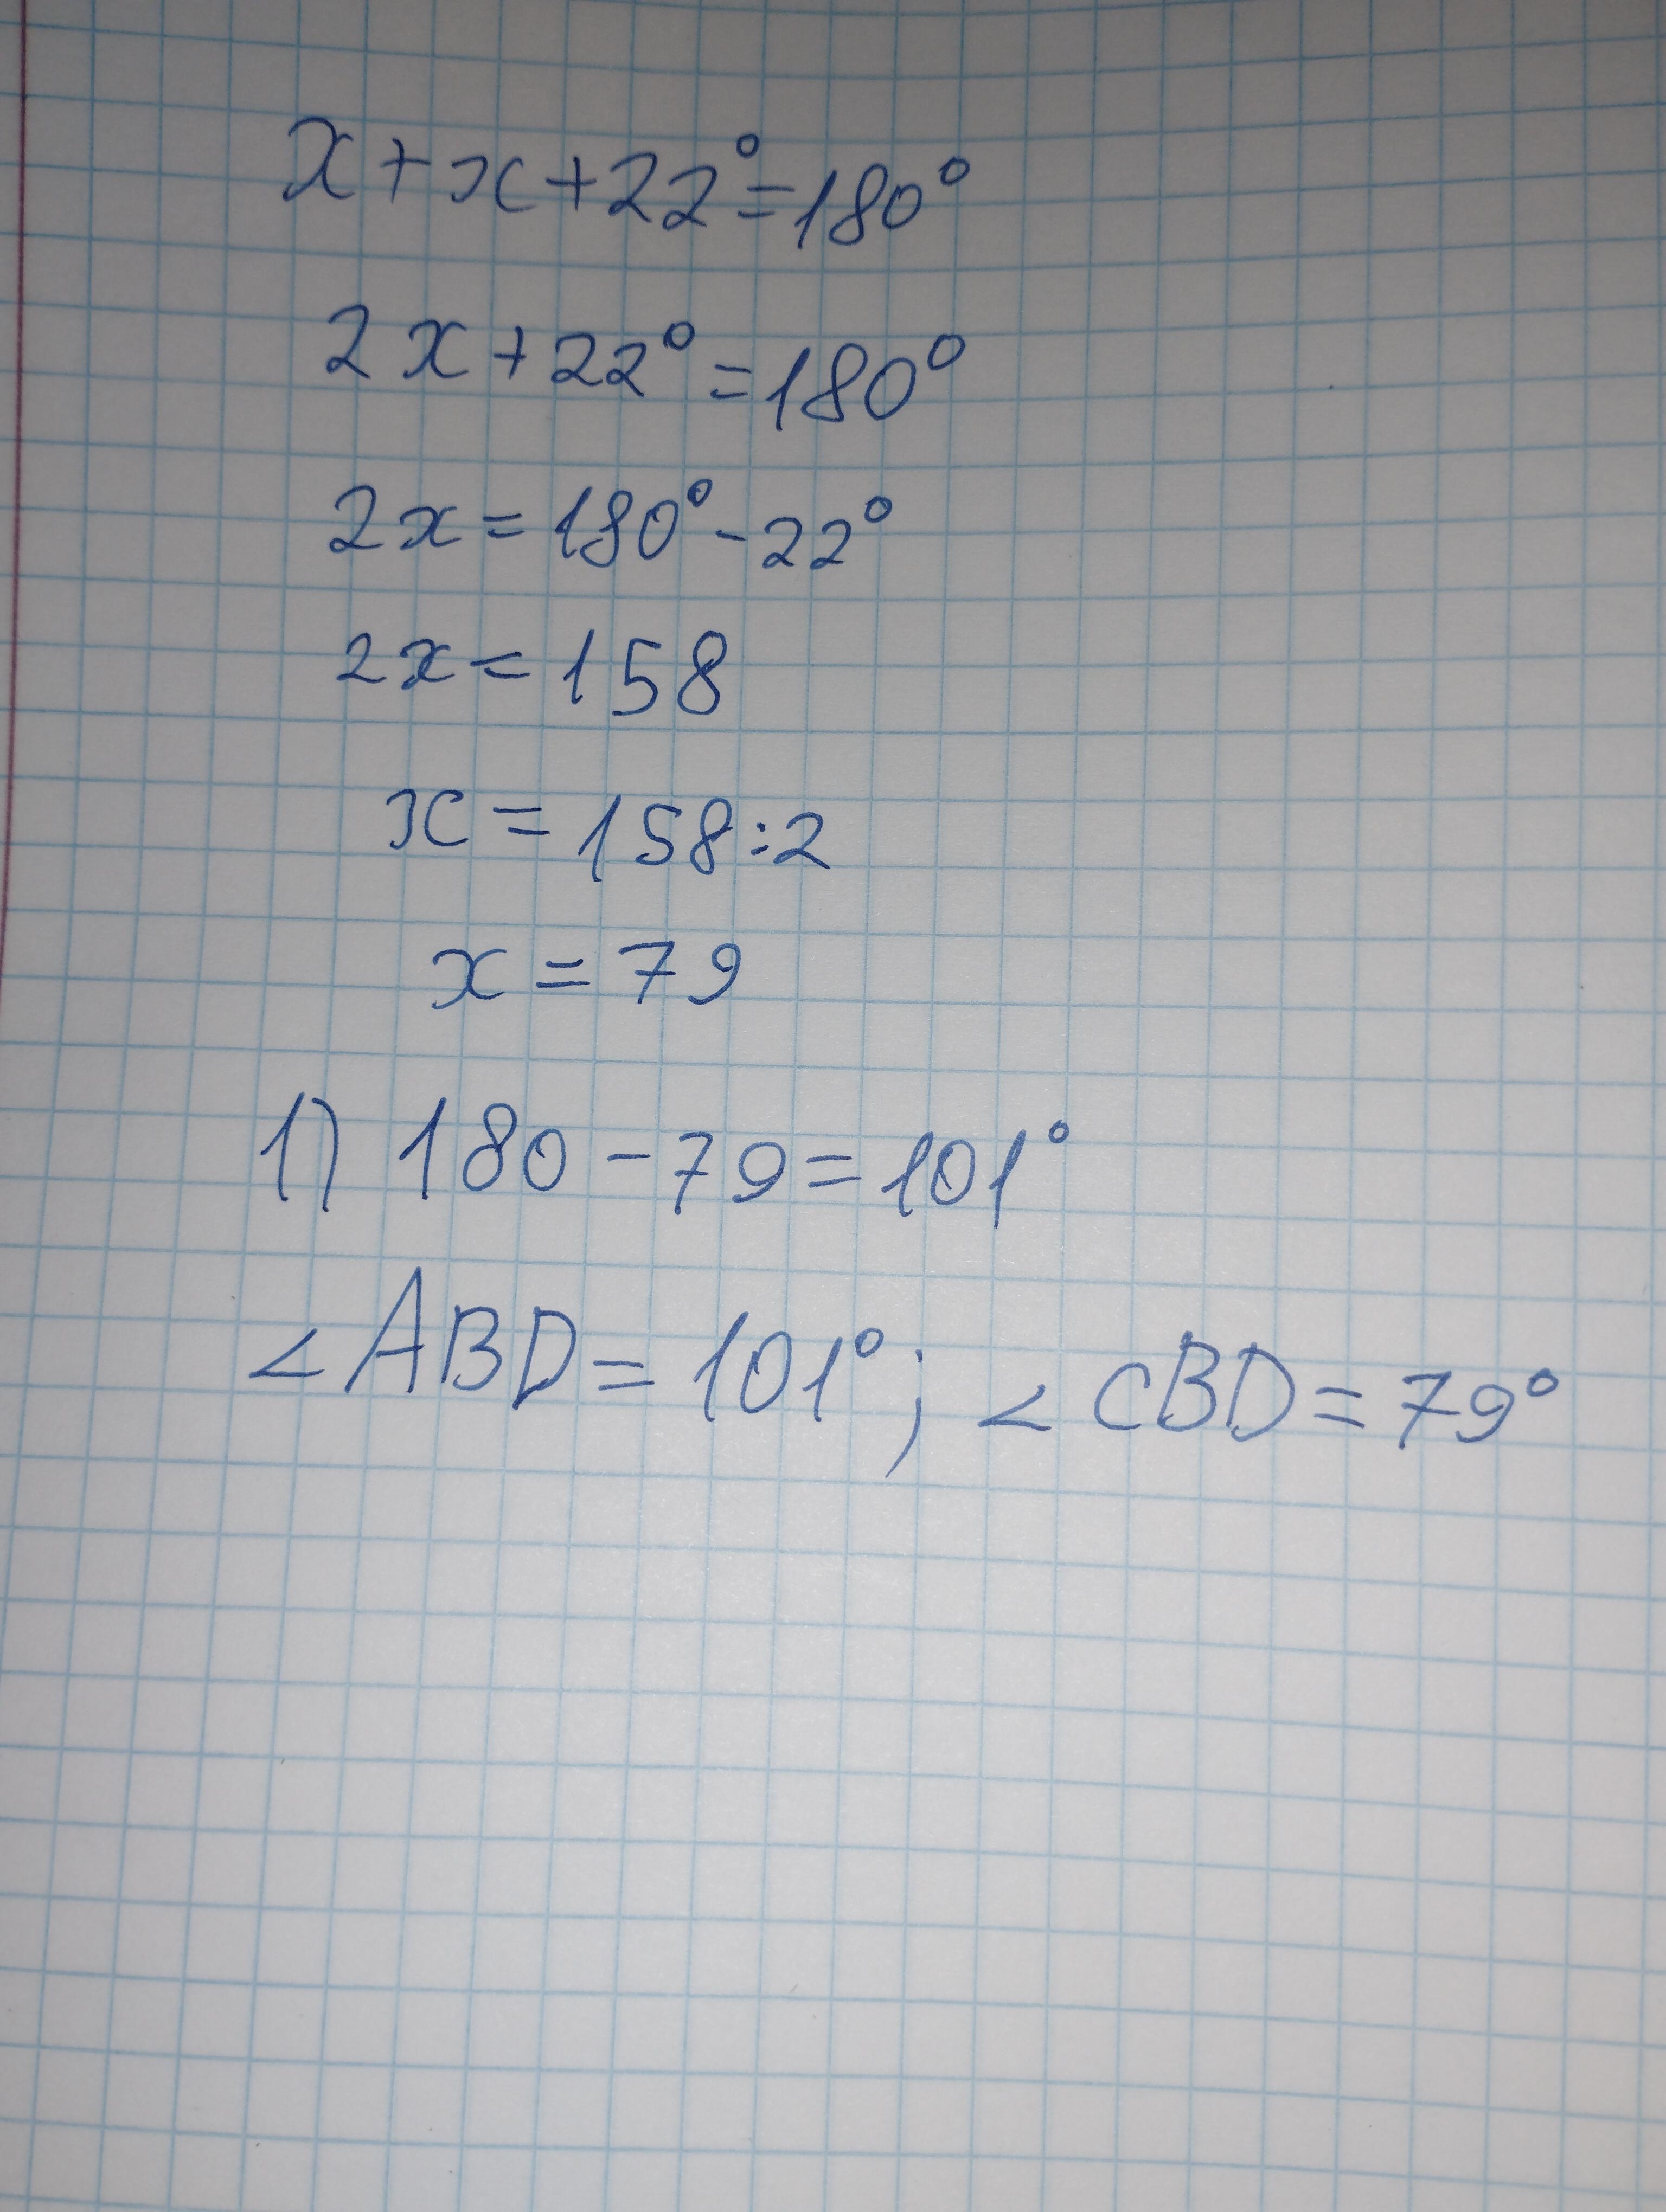 x+x+22°=180°
2x+22°=180°
2x=180°-22°
2x=158
x=158:2
x=79
1) 180-79=101°
∠ABD=101°; ∠CBD=79°